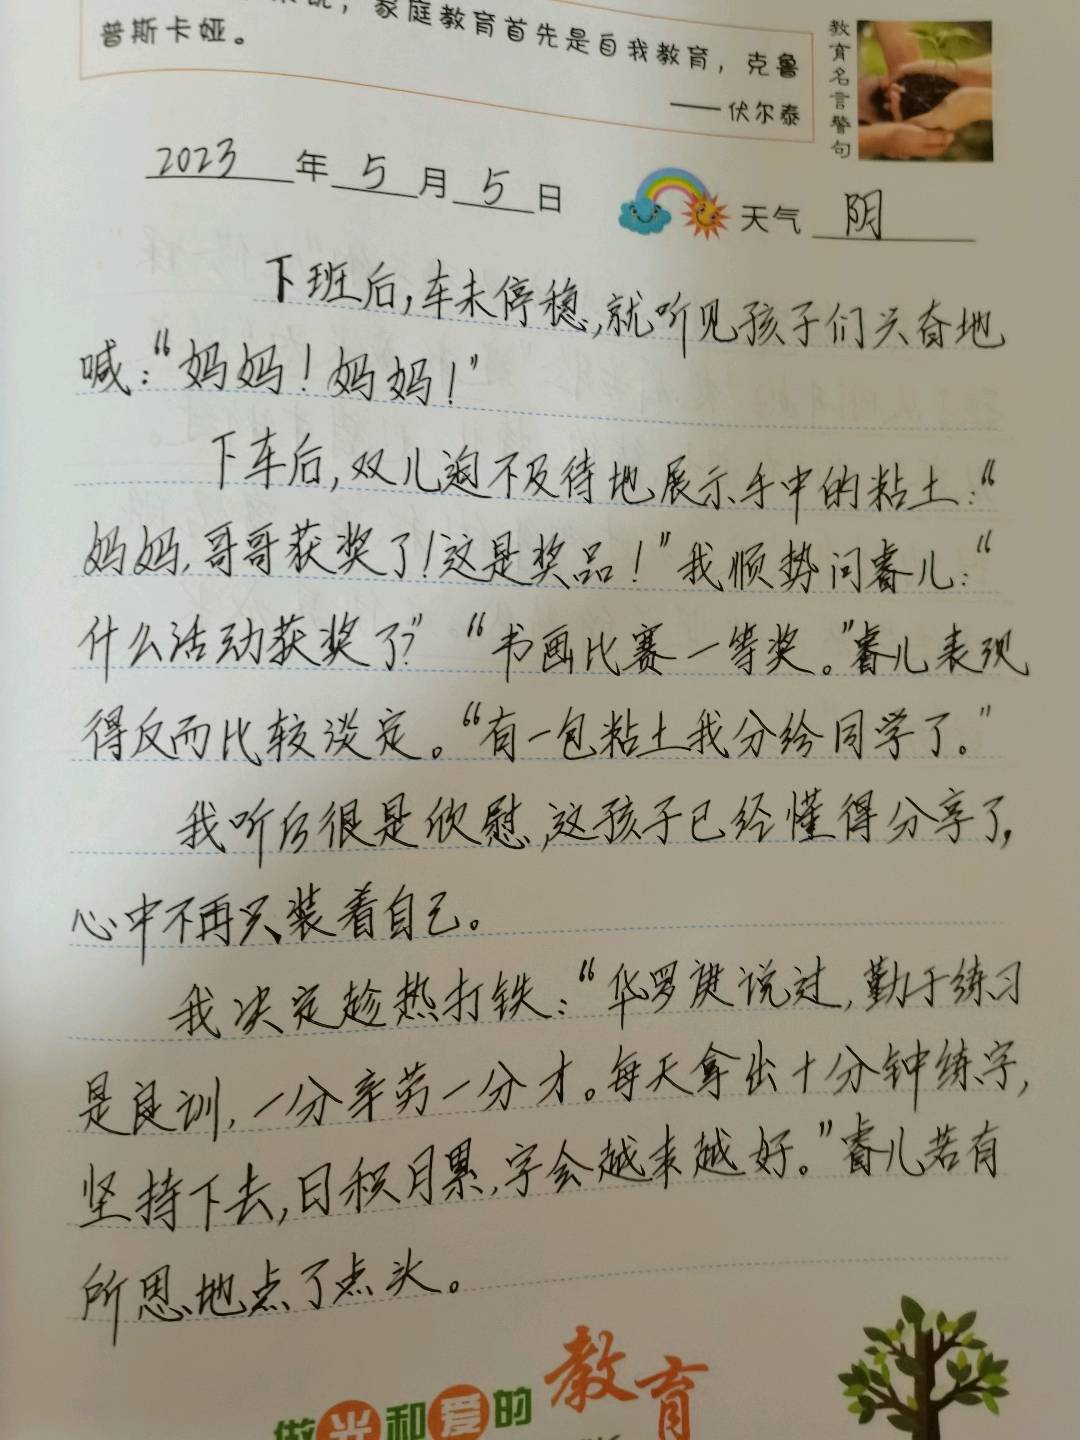 家庭教育首先是自我教育，克鲁
普斯卡娅。
——伏尔泰
教育名言警句
2023年5月5日 天气 阴
下班后,车未停稳,就听见孩子们兴奋地
喊:“妈妈!妈妈!”
下车后,双儿迫不及待地展示手中的粘土:“
妈妈,哥哥获奖了!这是奖品!”我顺势问睿儿:“
什么活动获奖了?”“书画比赛一等奖。”睿儿表现
得反而比较淡定。“有一包粘土我分给同学了。”
我听后很是欣慰,这孩子已经懂得分享了,
心中不再只装着自己。
我决定趁热打铁:“华罗庚说过,勤于练习
是良训,一分辛劳一分才。每天拿出十分钟练字,
坚持下去,日积月累,字会越来越好。”睿儿若有
所思地点了点头。
做光和爱的教育